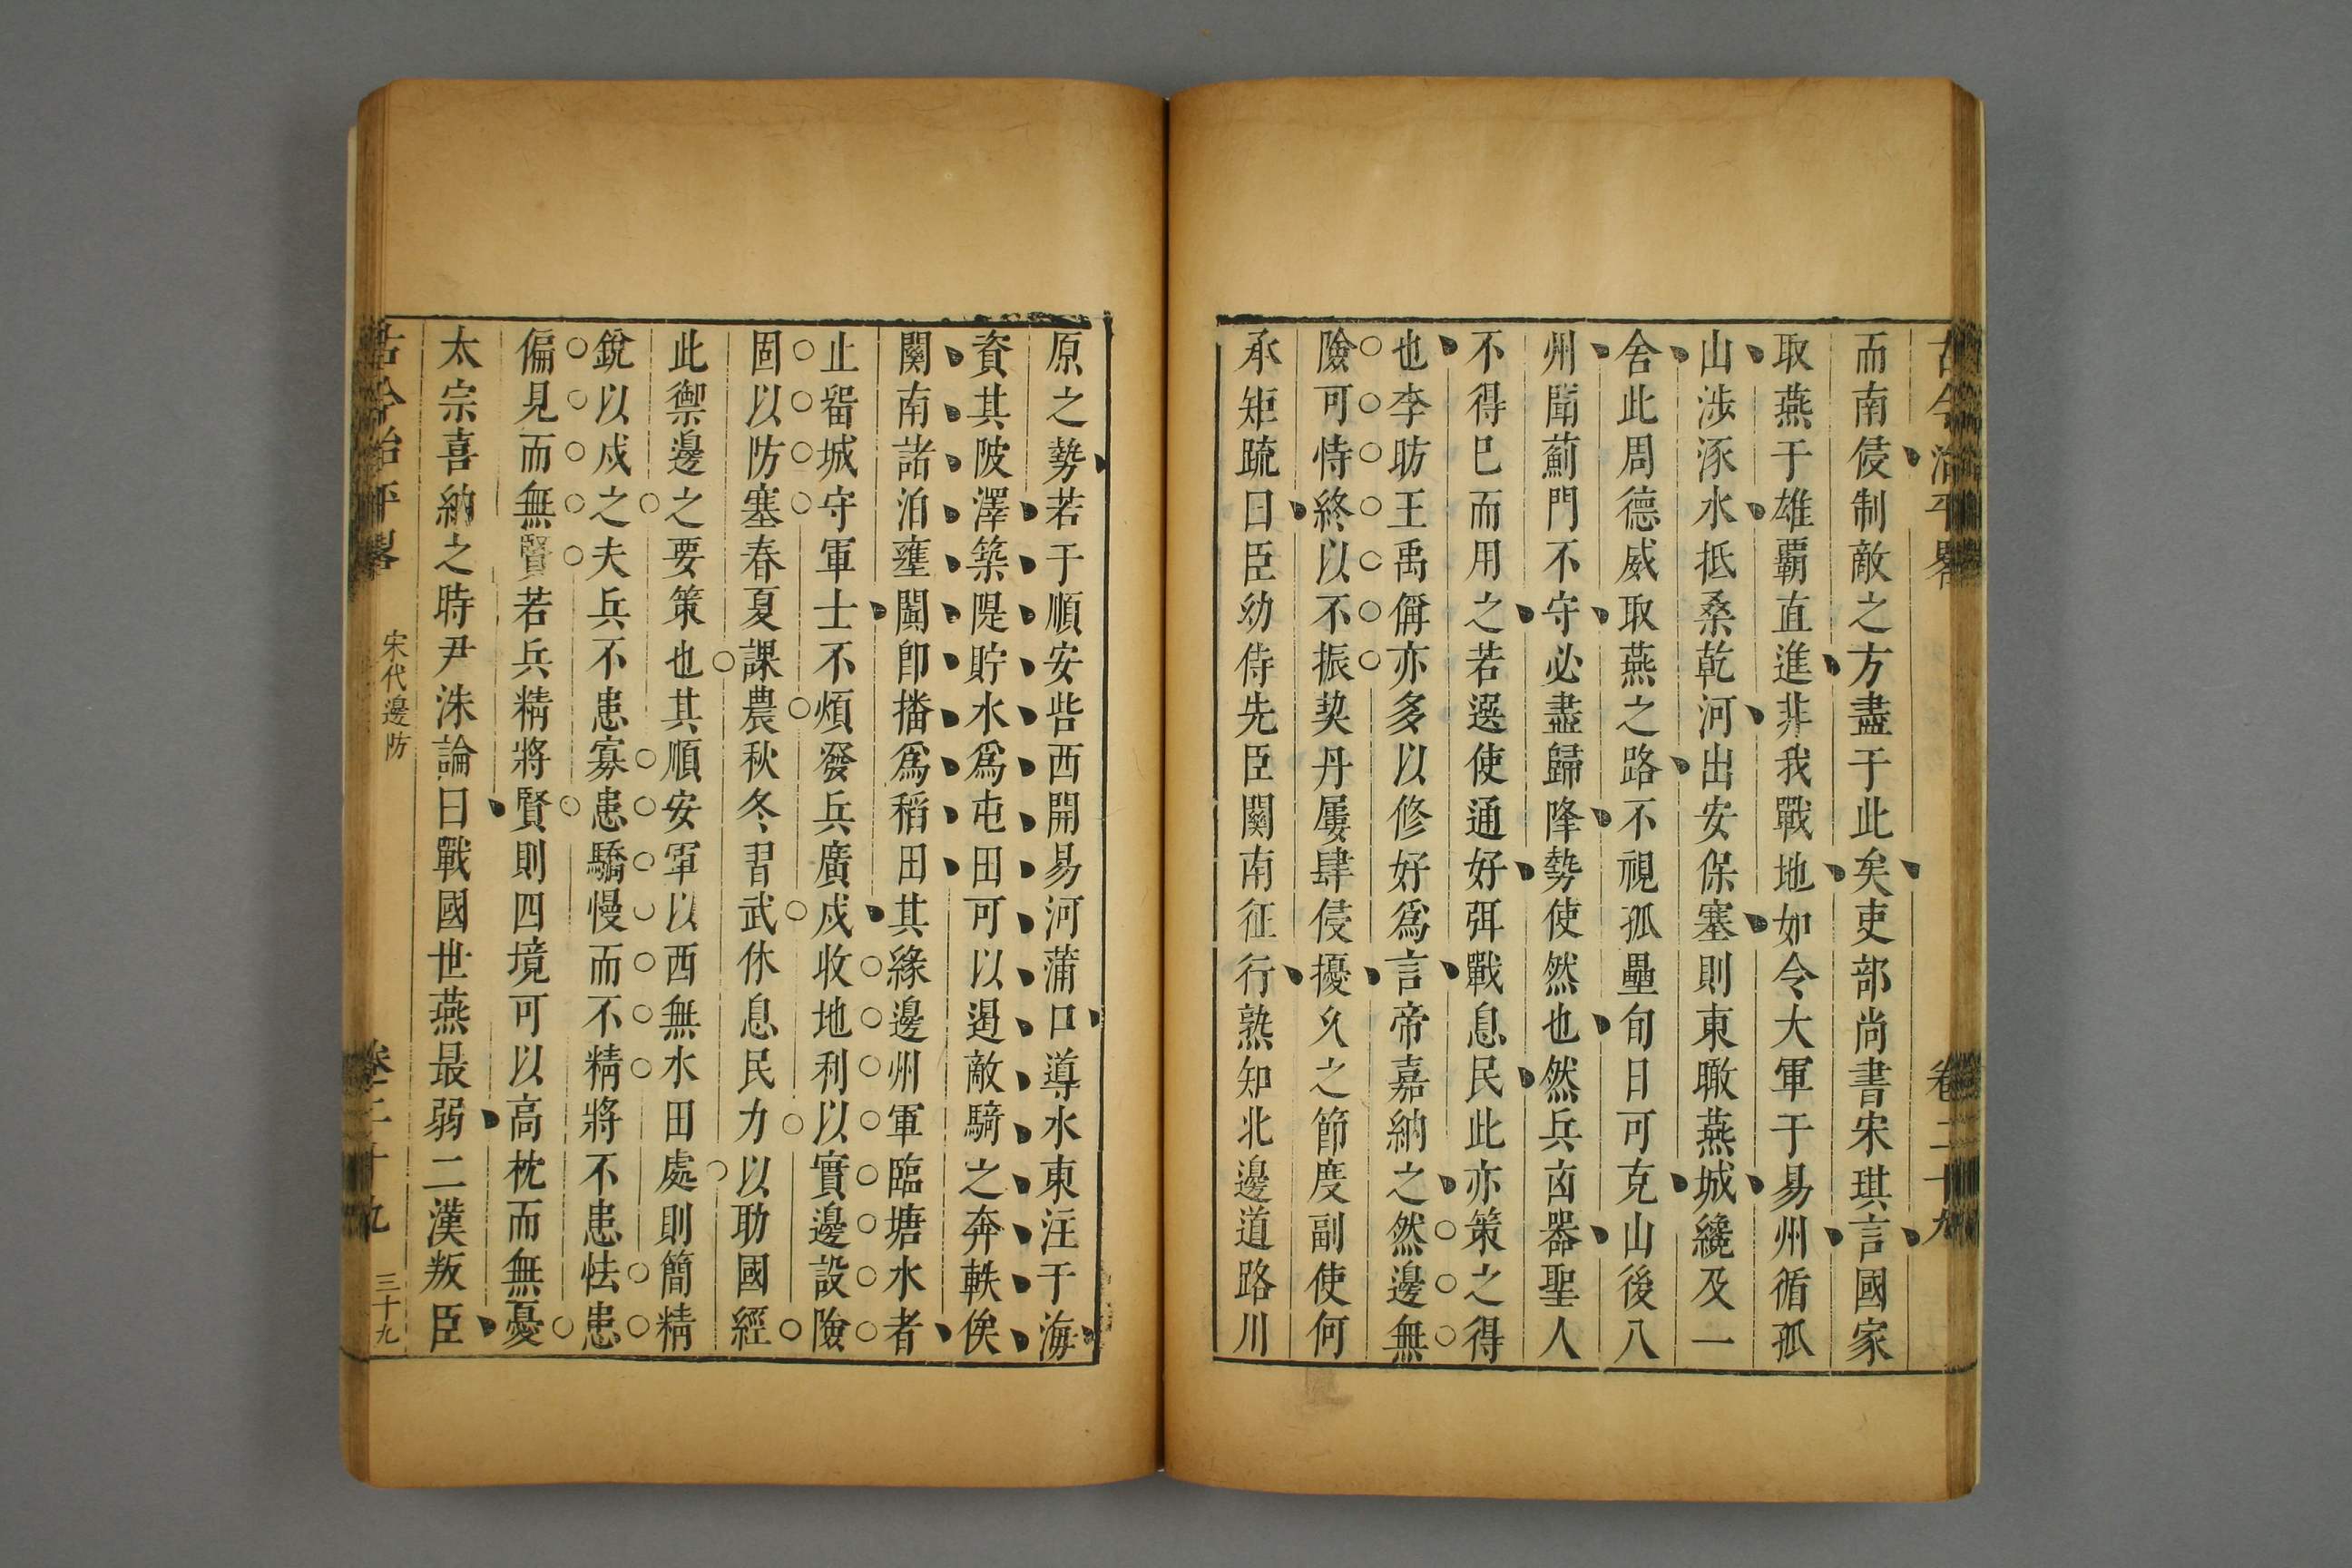 古今治平畧 卷二十九
而南侵制敵之方盡于此矣吏部尚書宋琪言國家
取燕于雄覇直進非我戰地如令大軍于易州循孤
山涉涿水抵桑乾河出安保塞則東瞰燕城纔及一
舍此周德威取燕之路不視孤壘旬日可克山後八
州聞薊門不守必盡歸降勢使然也然兵凶器聖人
不得巳而用之若選使通好弭戰息民此亦策之得
也李昉王禹偁亦多以修好爲言帝嘉納之然邊無
險可恃終以不振契丹屢肆侵擾久之節度副使何
承矩䟽曰臣幼侍先臣關南征行熟知北邊道路川
原之勢若于順安砦西開易河蒲口導水東注于海
資其陂澤築隄貯水爲屯田可以遏敵騎之奔軼俟
關南諸泊壅闐卽播爲稻田其緣邊州軍臨塘水者
止畱城守軍士不煩發兵廣戍收地利以實邊設險
固以防塞春夏課農秋冬習武休息民力以助國經
此禦邊之要策也其順安軍以西無水田處則簡精
銳以戍之夫兵不患寡患驕慢而不精將不患怯患
偏見而無賢若兵精將賢則四境可以高枕而無憂
太宗喜納之時尹洙論曰戰國世燕最弱二漢叛臣
古今治平畧 宋代邊防 卷二十九 三十九